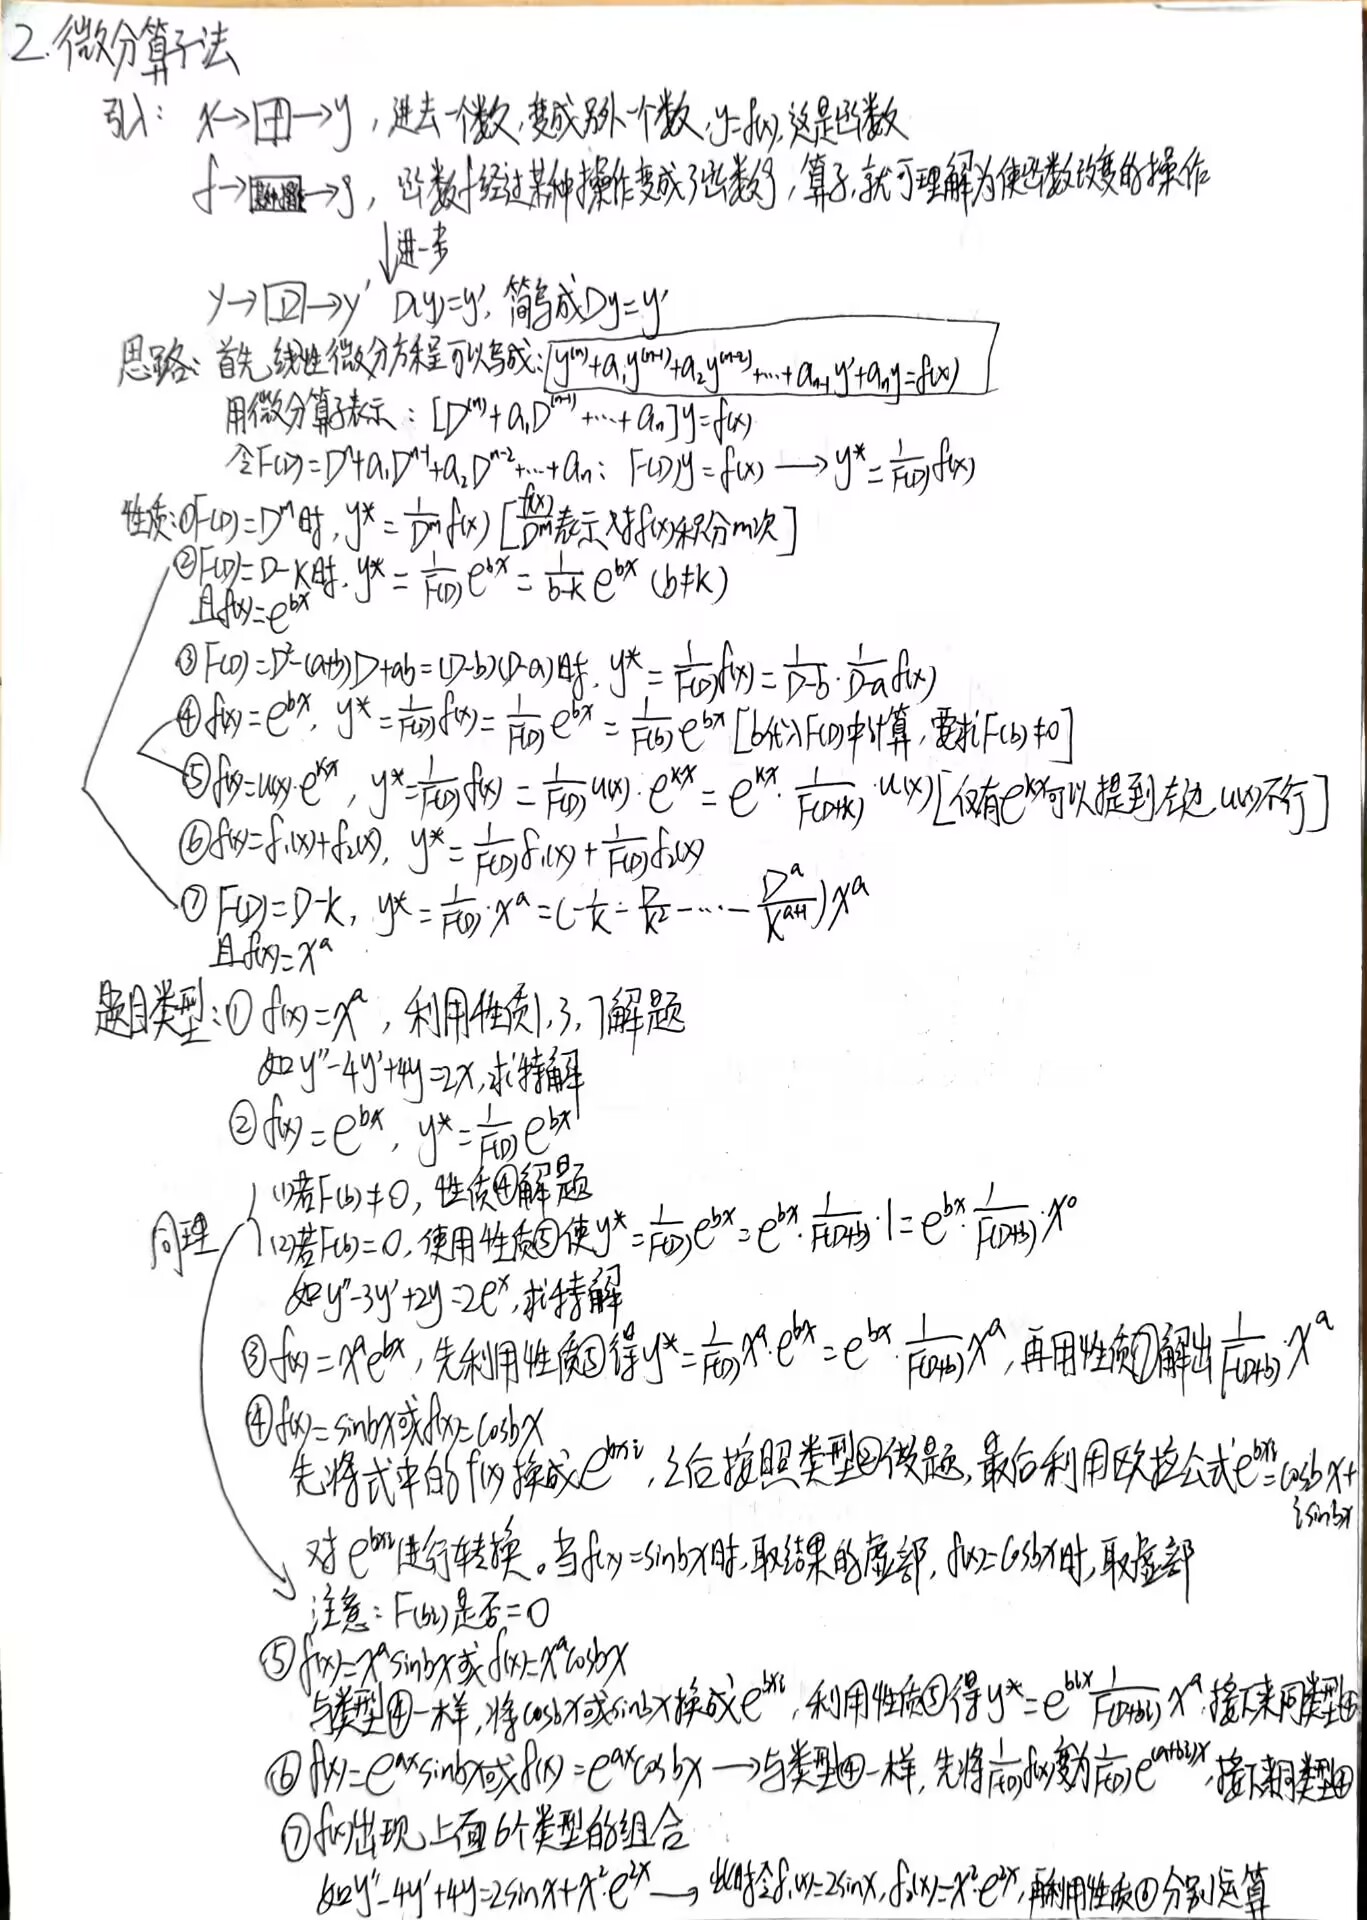 2.微分算子法
引入: x→[f]→y,进去一个数,变成另外一个数,y=f(x),这是函数
f→→g,函数f经过某种操作变成了函数g,算子,就可理解为使函数改变的操作
↓进一步
y→[D]→y′ D(y)=y′,简写成Dy=y′
思路:首先线性微分方程可以写成:y⁽ⁿ⁾+a₁y⁽ⁿ⁻¹⁾+a₂y⁽ⁿ⁻²⁾+…+aₙ₋₁y′+aₙy=f(x)
用微分算子表示:[D⁽ⁿ⁾+a₁D⁽ⁿ⁻¹⁾+…+aₙ]y=f(x)
令F(D)=Dⁿ+a₁Dⁿ⁻¹+a₂Dⁿ⁻²+…+aₙ: F(D)y=f(x)→y*=1/F(D) f(x)
性质:①F(D)=Dᵐ时,y*=1/Dᵐ f(x) [f(x)/Dᵐ表示对f(x)积分m次]
②F(D)=D-k时,y*=1/F(D) e^{bx}=1/(b-k) e^{bx} (b≠k)
且f(x)=e^{bx}
③F(D)=D²-(a+b)D+ab=(D-b)(D-a)时,y*=1/F(D) f(x)=1/(D-b)·1/(D-a) f(x)
④f(x)=e^{bx},y*=1/F(D) f(x)=1/F(D) e^{bx}=1/F(b) e^{bx} [b代入F(D)中计算,要求F(b)≠0]
⑤f(x)=u(x)·e^{kx},y*=1/F(D) f(x)=1/F(D) u(x)·e^{kx}=e^{kx}·1/F(D+k)·u(x) [仅有e^{kx}可以提到左边,u(x)不行]
⑥f(x)=f₁(x)+f₂(x),y*=1/F(D) f₁(x)+1/F(D) f₂(x)
⑦F(D)=D-k,y*=1/F(D)·x^a=(-1/k-D/k²-…-D^a/k^{a+1})x^a
且f(x)=x^a
题目类型:①f(x)=x^a,利用性质1,3,7解题
如y″-4y′+4y=2x,求特解
②f(x)=e^{bx},y*=1/F(D) e^{bx}
(1)若F(b)≠0,性质④解题
同理 (2)若F(b)=0,使用性质⑤使y*=1/F(D) e^{bx}=e^{bx}·1/F(D+b)·1=e^{bx}·1/F(D+b)·x⁰
如y″-3y′+2y=2e^x,求特解
③f(x)=x^a e^{bx},先利用性质⑤得y*=1/F(D) x^a·e^{bx}=e^{bx}·1/F(D+b) x^a,再用性质⑦解出1/F(D+b)·x^a
④f(x)=sinbx或f(x)=cosbx
先将式中的f(x)换成e^{bxi},之后按照类型②做题,最后利用欧拉公式e^{bxi}=cosbx+
isinbx
对e^{bxi}进行转换。当f(x)=sinbx时,取结果的虚部,f(x)=cosbx时,取虚部
注意:F(bi)是否=0
⑤f(x)=x^a sinbx或f(x)=x^a cosbx
与类型④一样,将cosbx或sinbx换成e^{bxi},利用性质⑤得y*=e^{bix} 1/F(D+bi) x^a,接下来同类型④
⑥f(x)=e^{ax}sinbx或f(x)=e^{ax}cosbx→与类型④一样,先将1/F(D) f(x)变为1/F(D) e^{(a+bi)x},接下来同类型④
⑦f(x)出现上面6个类型的组合
如y″-4y′+4y=2sinx+x²·e^{2x}→此时令f₁(x)=2sinx,f₂(x)=x²·e^{2x},再利用性质⑥分别运算